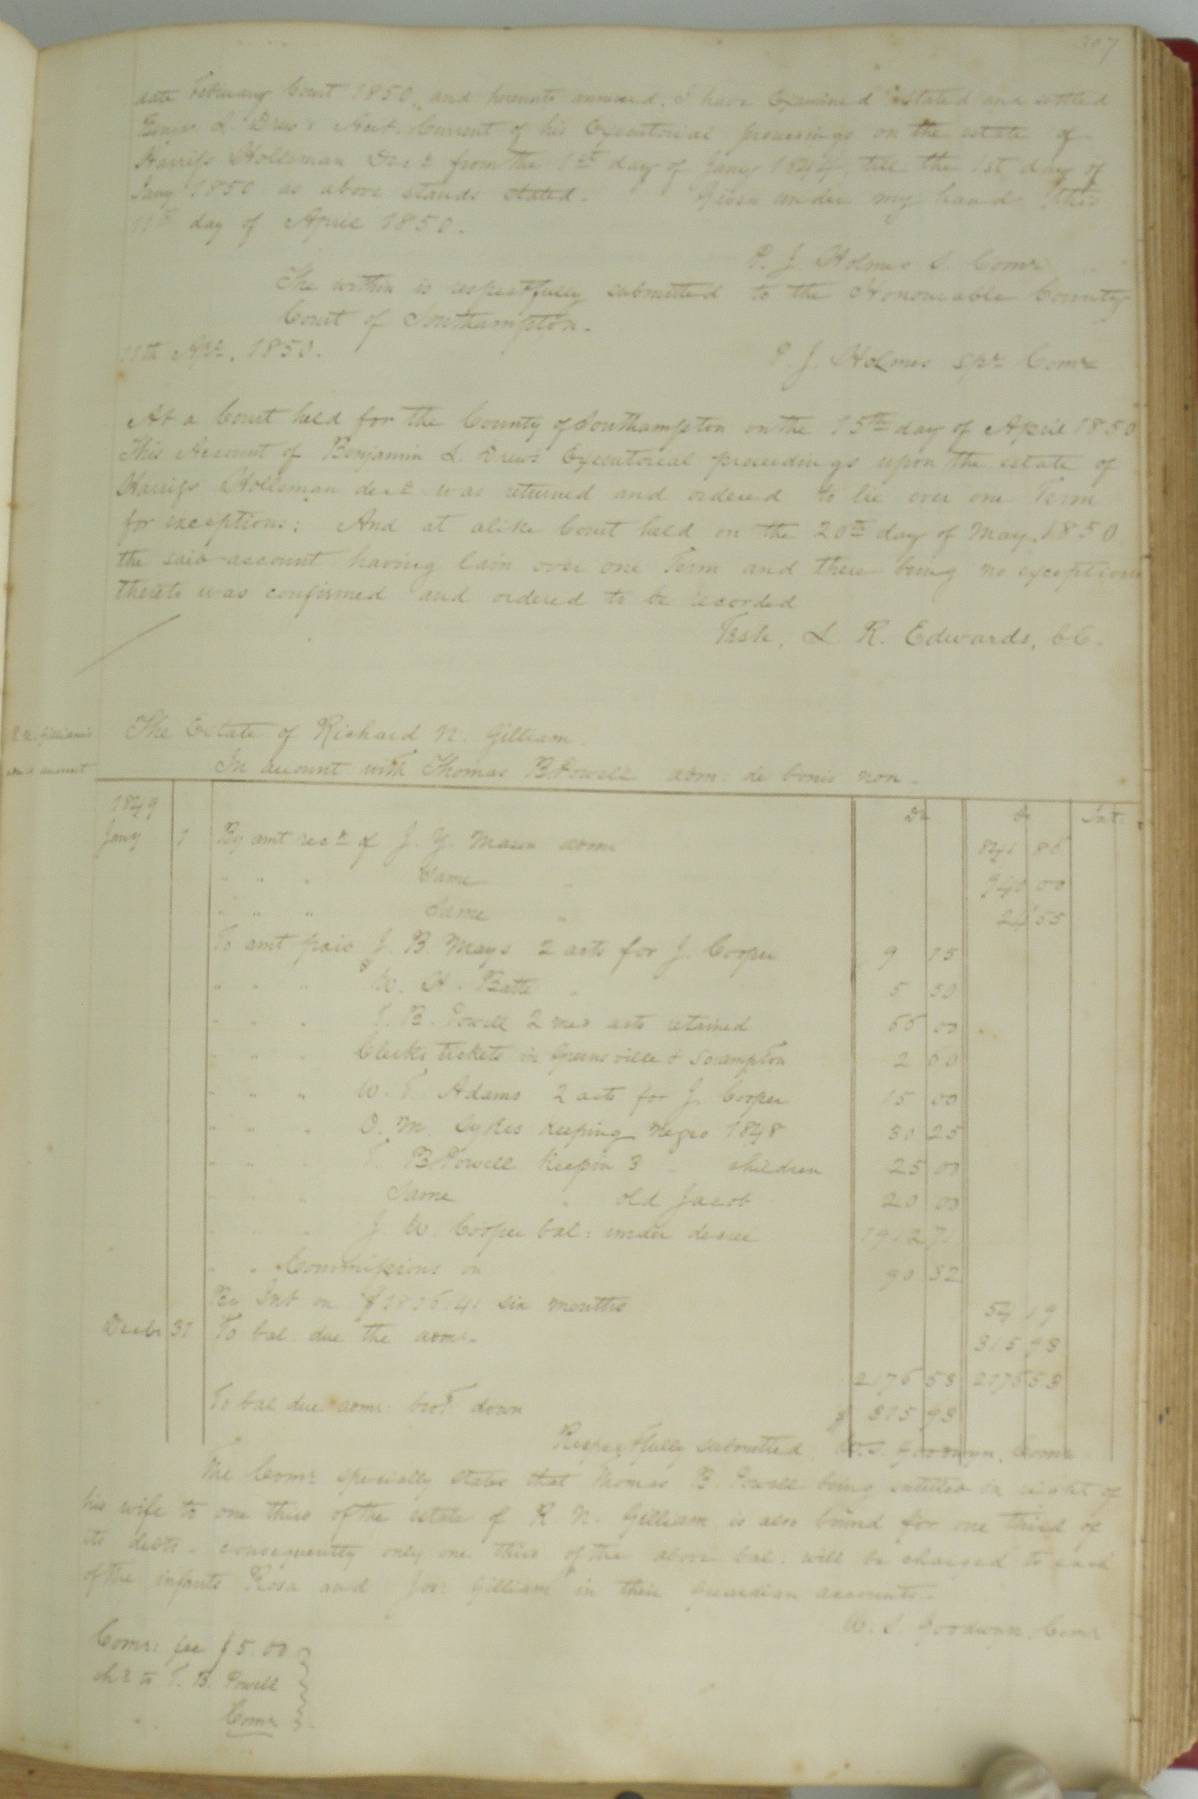 307
date February Court 1850, and hereunto annexed, I have Examined stated and settled
Benja. L. Drew's Acct. Current of his Executorial proceedings on the estate of
Harriss Holleman Decd. from the 1st day of Jany 1844, till the 1st day of
Jany 1850 as above stands stated. Given under my hand this
11th day of April 1850.
P. J. Holmes S. Comr.
The within is respectfully submitted to the Honourable County
Court of Southampton.
11th Apr. 1850.
P. J. Holmes Spr Comr
At a Court held for the County of Southampton on the 15th day of April 1850
This Account of Benjamin L. Drew's Executorial proceedings upon the estate of
Harriss Holleman decd. was returned and ordered to lie over one Term
for exceptions; And at alike Court held on the 20th day of May, 1850
the said account having lain over one Term and there being no exceptions
thereto was confirmed and ordered to be recorded
Teste, L. R. Edwards, CC.
R. N. Gilliam's
The Estate of Richard N. Gilliam
In account with Thomas B Powell adm. de bonis non.
1849 Dr Cr Int.
Jany 1 By amt recd. of J. Y. Mason admr 841 86
" " " Same " 940 00
" " " Same " 24 55
To amt paid J. B. Mays 2 acts for J. Cooper 9 15
" " " W. H. Batte " 5 50
" " " T. B. Powell 2 acts retained 66 00
" " " Clerks tickets in Greensville & Sohampton 2 60
" " " W. T. Adams 2 acts for J. Cooper 15 00
" " " O. M. Cykes keeping negro 1848 30 25
" " " T. B Powell keepin 3 " children 25 00
" " " Same " old Jacob 20 00
" " " J. W. Cooper bal: under decree 1912 71
" " Commissions on 90 32
By Int on $1806.41 six months 54 19
Decbr 31 To bal. due the admr. 315 93
2176 53 2176 53
To bal due admr brot down $ 315 93
Respectfully submitted, W. S. Goodwyn, Comr
The Comr specially states that Thomas B. Powell being entitled in right of
his wife to one third of the estate of R. N. Gilliam is also bound for one third of
its debts - consequently only one third of the above bal: will be charged to each
of the infants Rosa and Jos: Gilliam in their Guardian accounts.
W. S. Goodwyn, Comr
Comr: fee $5.00
chd to T. B. Powell
" Comr